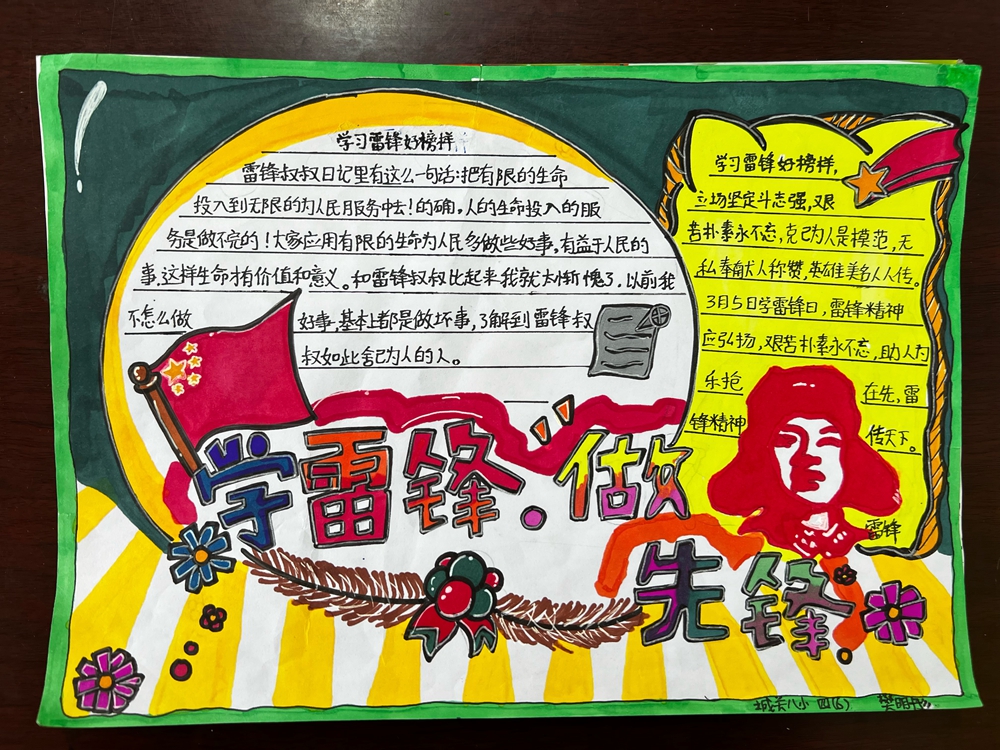 学习雷锋好榜样
雷锋叔叔日记里有这么一句话:把有限的生命
投入到无限的为人民服务中去!的确,人的生命投入的服
务是做不完的!大家应用有限的生命为人民多做些好事,有益于人民的
事,这样生命才有价值和意义。和雷锋叔叔比起来我就太惭愧了,以前我
不怎么做 好事,基本上都是做坏事,了解到雷锋叔
叔如此舍己为人的人。
学习雷锋好榜样,
立场坚定斗志强,艰
苦朴素永不忘,克己为人是模范,无
私奉献人称赞,英雄美名人人传。
3月5日学雷锋日,雷锋精神
应弘扬,艰苦朴素永不忘,助人为
乐抢 在先,雷
锋精神 传天下。
雷锋
学雷锋·做
先锋
城关八小 四(6)